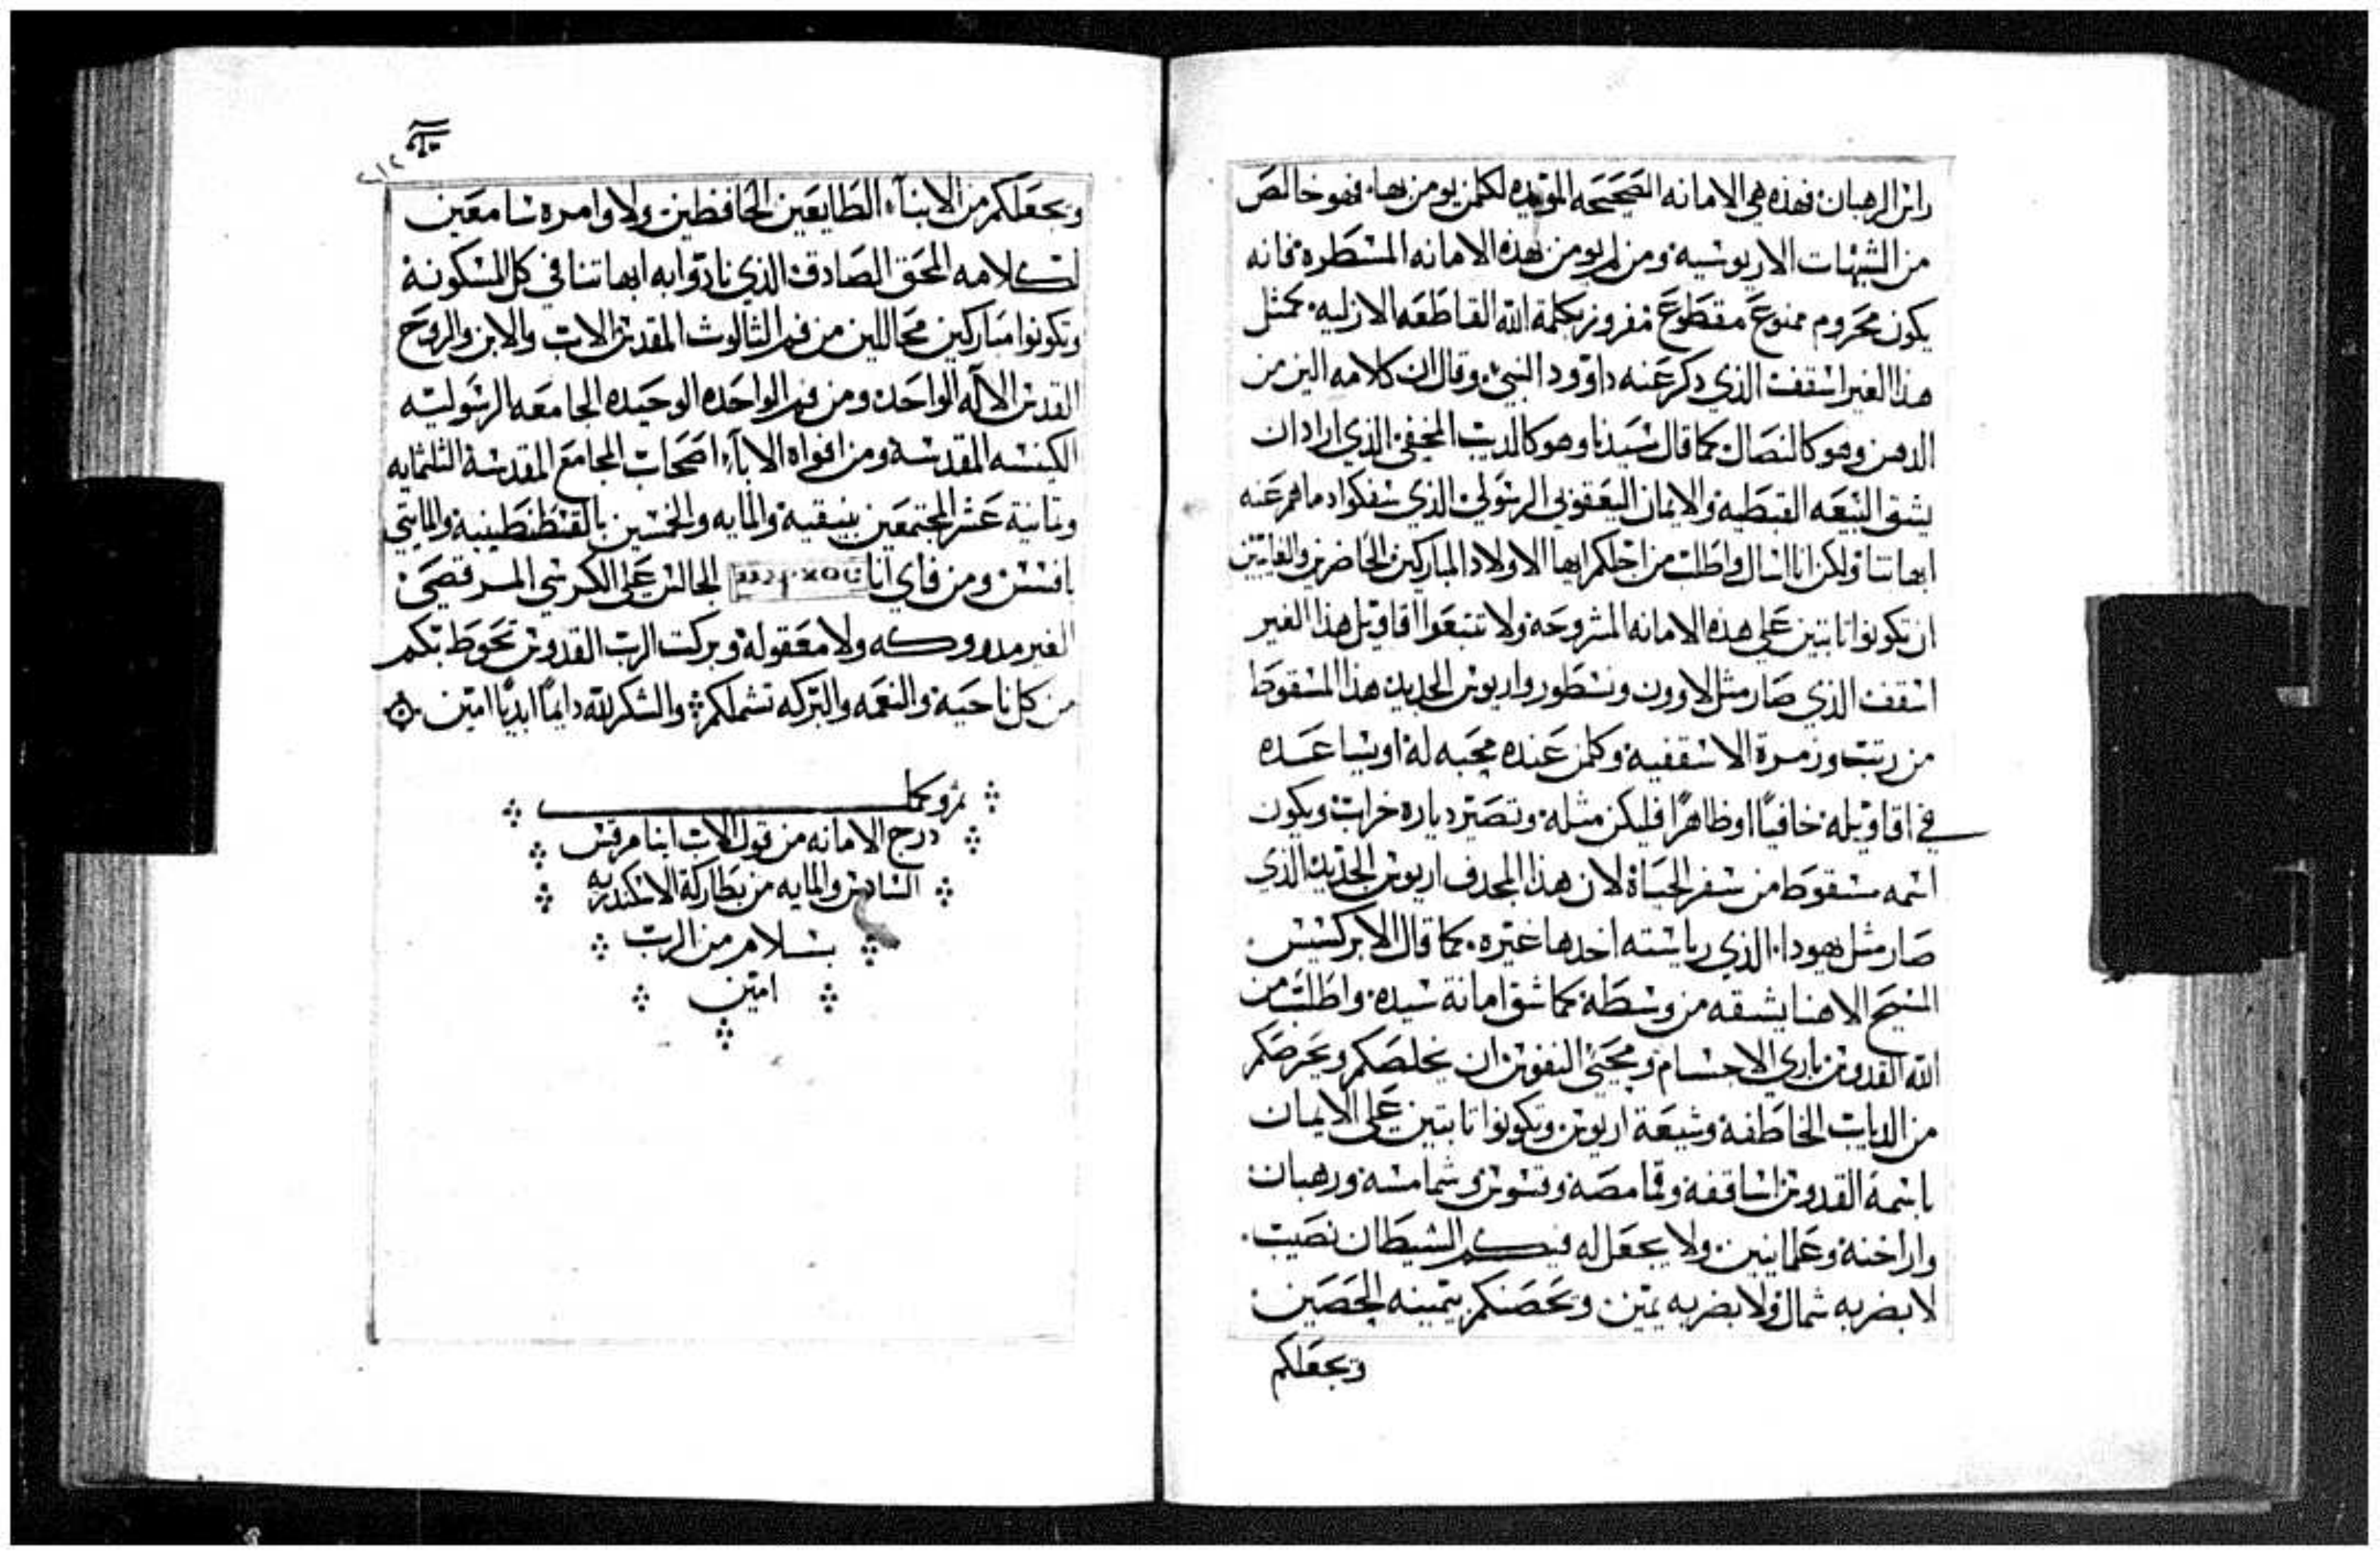 راس الرهبان فهذه هي الامانه الصحيحه المؤيده لكلمن يومن بها فهو خالص
من الشبهات الاريوسيه ومن لم يومن بهذه الامانه المسطره فانه
يكون محروم ممنوع مقطوع مفروز بكلمة الله القاطعه الازليه كمثل
هذا الغير اسقف الذي دكر عنه داوود النبي وقال ان كلامه الين من
الدهن وهو كالنصال كما قال سيدنا وهو كالديب المخفي الذي اراد ان
يشق البيعه القبطيه والايمان اليعقوبي الرسولي الذي سفكوا دماهم عنه
ابهاتنا ولكن انا اسال واطلب من اجلكم ايها الاولاد المباركين الحاضرين والغايبين
ان تكونوا تابتين على هذه الامانه المشروحه ولا تتبعوا اقاويل هذا الغير
اسقف الذي صار مثل لاوون ونسطور واريوس الجديد هذا المسقوط
من رتبت وزمرة الاسقفيه وكلمن عنده محبه له او يساعده
في اقاويله خافيا او ظاهرا فليكن مثله وتصير دياره خراب ويكون
اسمه مسقوط من سفر الحياة لان هذا المجدف اريوس الجديد الذي
صار مثل يهودا الذي رياسته اخدها غيره كما قال الابركسيس
المسيح الاهنا يشقه من وسطه كما شق امانة سيده واطلب من
الله القدوس باري الاجسام ومحيي النفوس ان يخلصكم ويحرصكم
من الدياب الخاطفه وشيعة اريوس وتكونوا تابتين على الايمان
باسمه القدوس اساقفه وقمامصه وقسوس وشمامسه ورهبان
واراخنه وعلمانيين ولا يجعل له فيكم الشيطان نصيب
لا بضربه شمال ولا بضربه يمين ويحصنكم بيمينه الحصين
ويجعلكم
ويجعلكم من الابنآء الطايعين الحافظين ولاوامره سامعين
لكلامه المحق الصادق الذي نادوا به ابهاتنا في كل المسكونة
وتكونوا مباركين محاللين من فم الثالوث المقدس الاب والابن والروح
القدس الاله الواحد ومن فم الواحده الوحيده الجامعه الرسوليه
الكنيسه المقدسة ومن افواه الابآء اصحاب المجامع المقدسة الثلثمايه
وتمانية عشر المجتمعين بنيقية والمايه والخمسين بالقسطنطينية والمايتي
بافسس ومن فاي انا الجالس على الكرسي المرقصي
الغير مدروكه ولا معقوله وبركت الرب القدوس تحوط بكم
من كل ناحية والنعمه والبركه تشملكم والشكر لله دايما ابديا امين
تم وكمل
درج الامانه من قول الاب انبا مرقس
السادس والمايه من بطاركة الاسكندريه
بسلام من الرب
امين